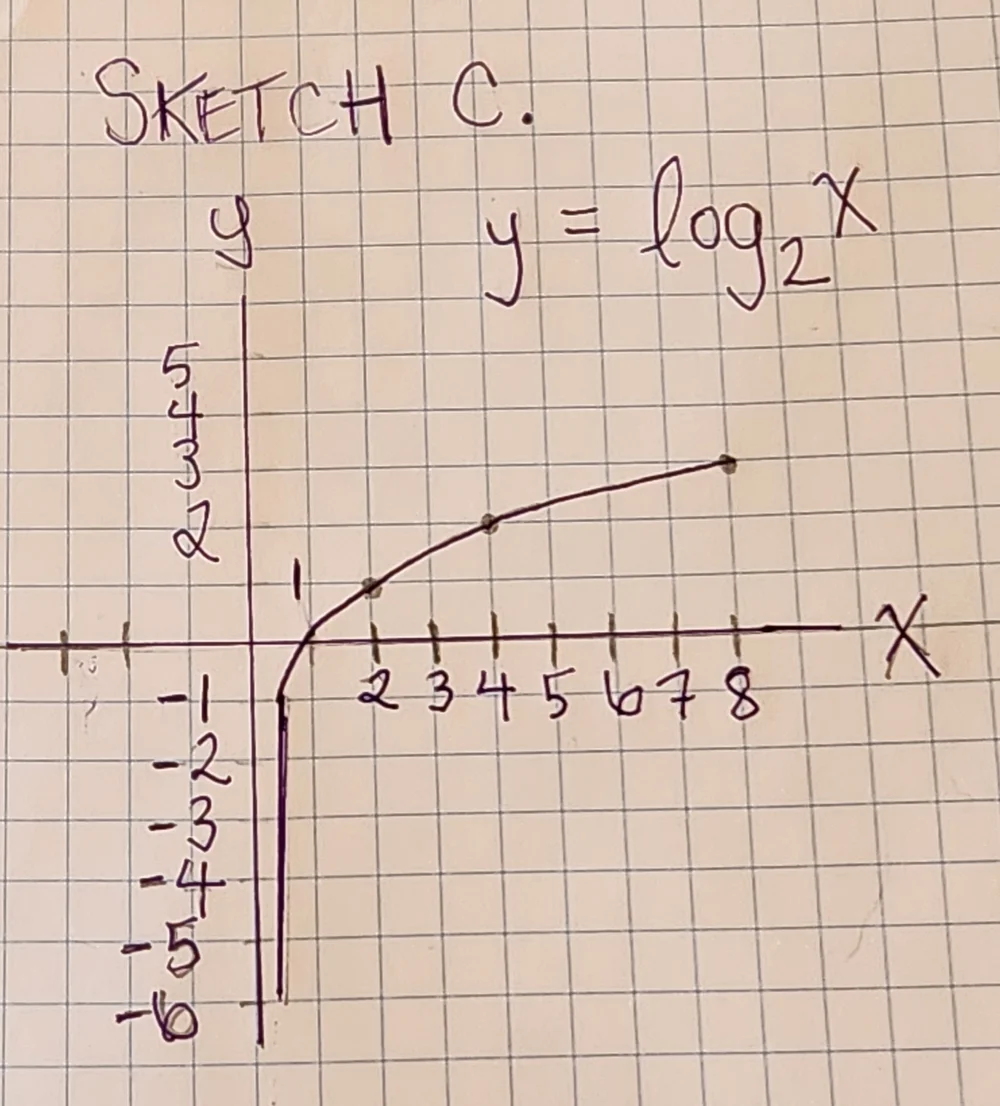 SKETCH C.
y
y = log₂x
5
4
3
2
1
X
2 3 4 5 6 7 8
-1
-2
-3
-4
-5
-6